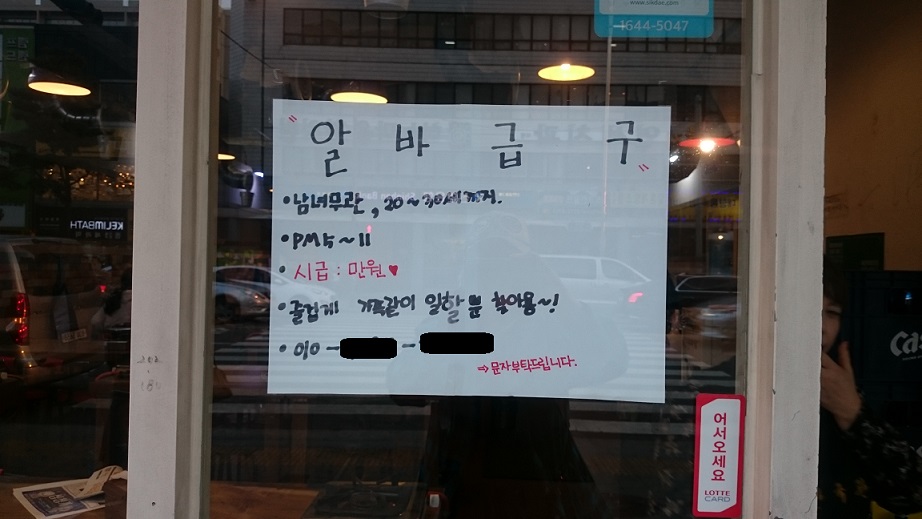 www.sikdae.com
1644-5047
" 알 바 급 구 "
• 남녀무관, 20~30세까지.
• PM 5 ~ 11
• 시급 : 만원♥
• 즐겁게 가족같이 일할 뿐 찾아용~!
• 010 - -
⇒ 문자부탁드립니다.
KELIMBATH
어서오세요
LOTTE
CARD